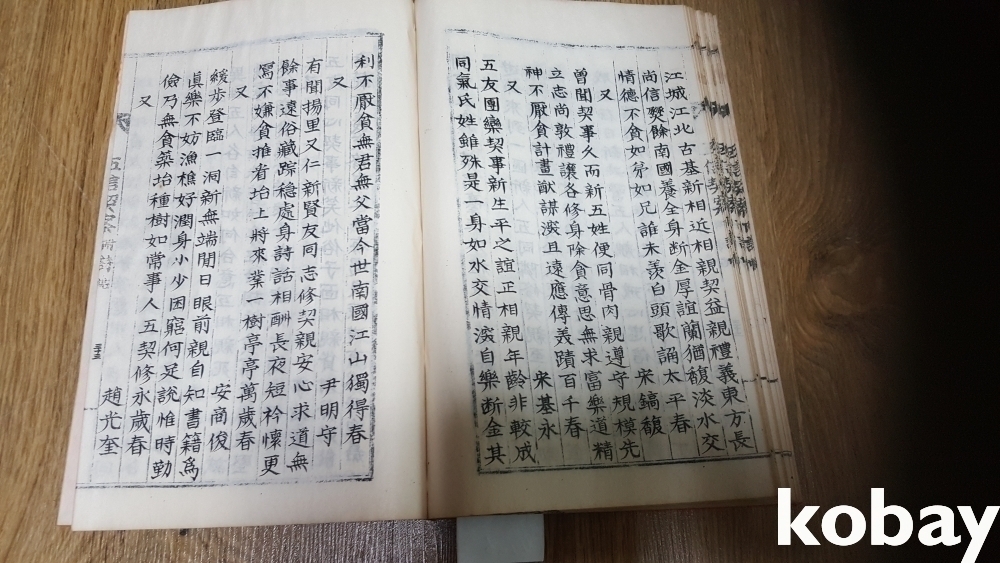 江城江北古基新相近相親契益親禮義東方長
尚信燹餘南國養全身断金厚誼蘭猶馥淡水交
情德不貪如弟如兄誰未羨白頭歌誦太平春
又 宋鎬馥
曾聞契事久而新五姓便同骨肉親遵守規模先
立志尚敦禮讓各修身除貪意思無求富樂道精
神不厭貪計畫猷謀深且遠應傳義蹟百千春
又 宋基永
五友團欒契事新生平之誼正相親年齡非較成
同氣氏姓雖殊是一身如水交情深自樂断金其
利不厭貧無君無父當今世南國江山獨得春
又 尹明守
有聞揚里又仁新賢友同志修契親安心求道無
餘事遠俗藏踪穩處身詩話相酬長夜短衿懷更
寫不嫌貧推省坮上將來業一樹亭亭萬歲春
又 安商俊
緩步登臨一洞新無端閒日眼前親自知書籍爲
眞樂不妨漁樵好潤身小少困窮何足說惟時勤
儉乃無貪築坮種樹如常事人五契修永歲春
又 趙光奎
kobay